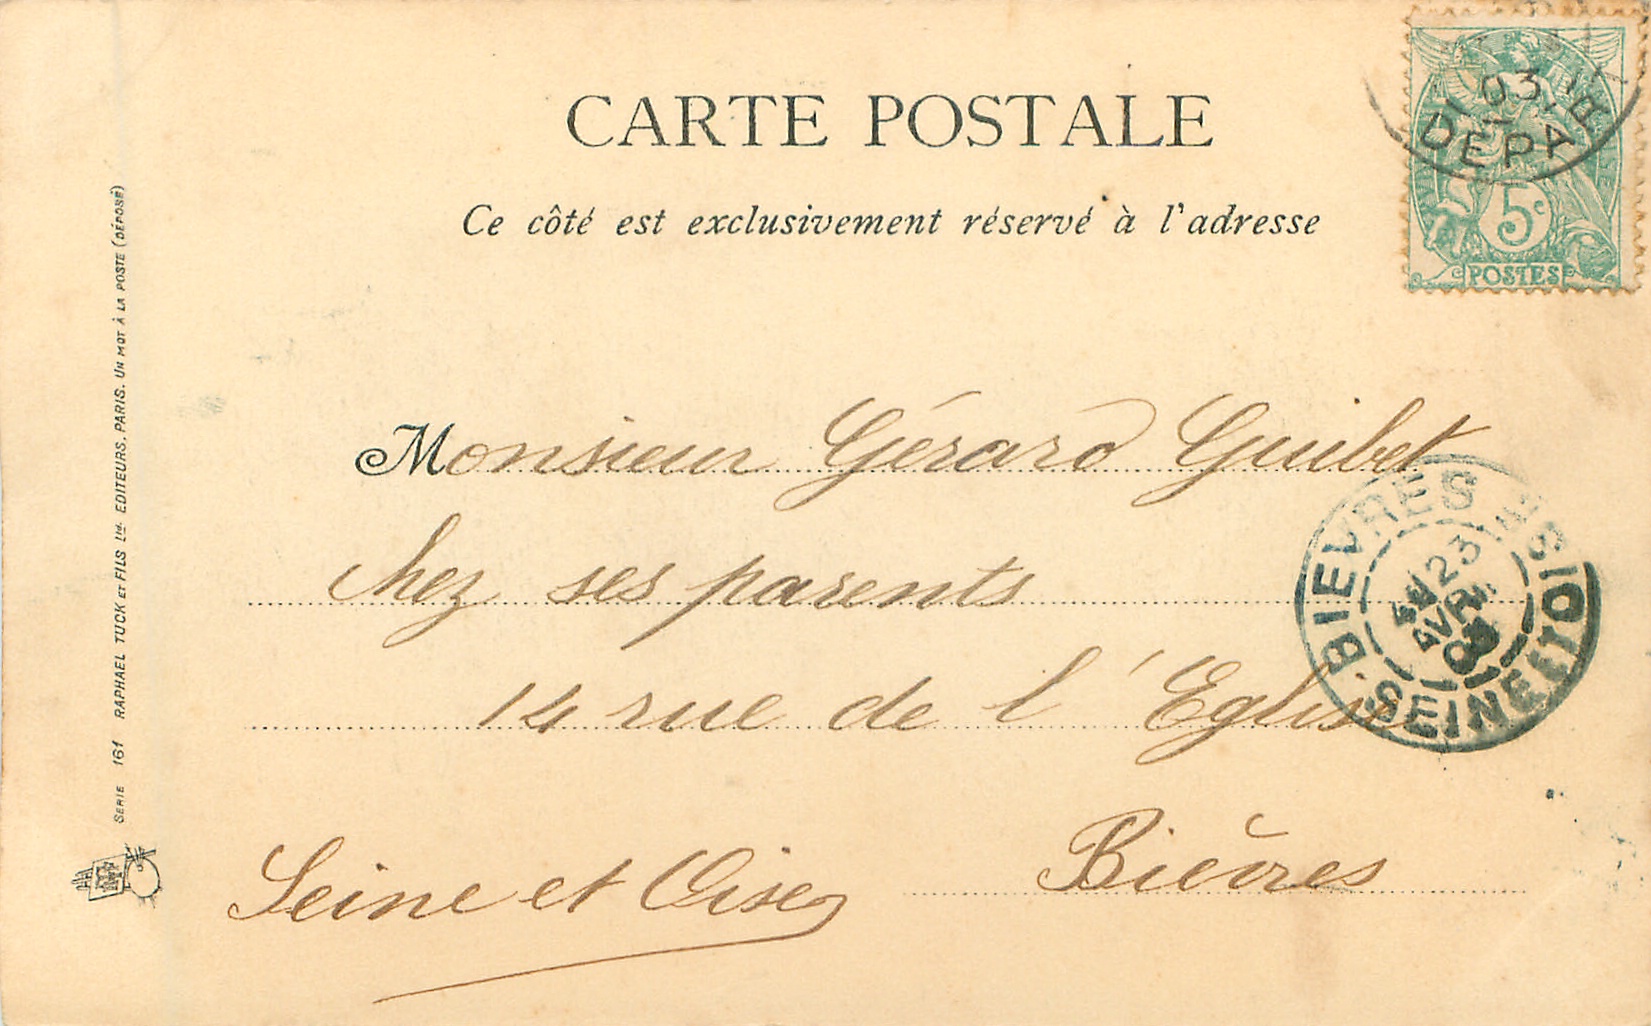 CARTE POSTALE
Ce côté est exclusivement réservé à l'adresse
03
DEPAR
5c
POSTES
Monsieur Gérard Guibet
chez ses parents
14 rue de l'Eglise
Bièvres
Seine et Oise
BIEVRES
23
AVRIL
03
SEINE ET OISE
SERIE 161 RAPHAEL TUCK ET FILS Ltd. EDITEURS. PARIS. UN MOT À LA POSTE (DÉPOSÉ)